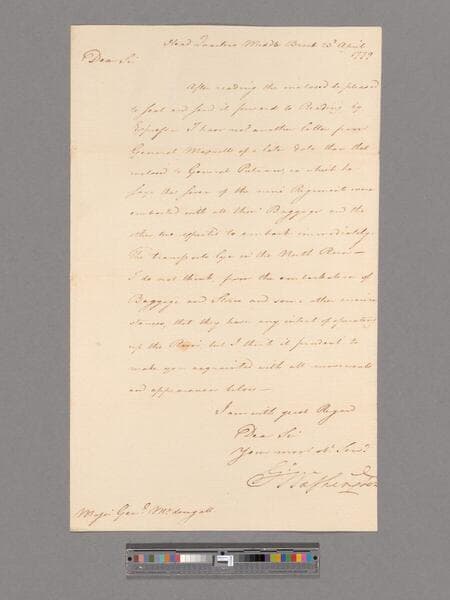 Head Quarters Middle Brook 23d April
1779
Dear Sir
After reading the enclosed be pleased
to seal and send it forward to Reading by
Express. I have not another letter from
General Maxwell of a late date than that
enclosed to General Putnam, in which he
says that seven of the nine Regiments were
embarked with all their Baggage and the
other two expected to embark immediately.
The transports lye in the North River —
I do not think from the embarkation of
Baggage and Stores and some other circum
stances, that they have any intent of operating
up the River but I think it prudent to
make you acquainted with all movements
and appearances below —
I am with great Regard
Dear Sir
Your most Obt Servt
Go Washington
Major Genl McDougall